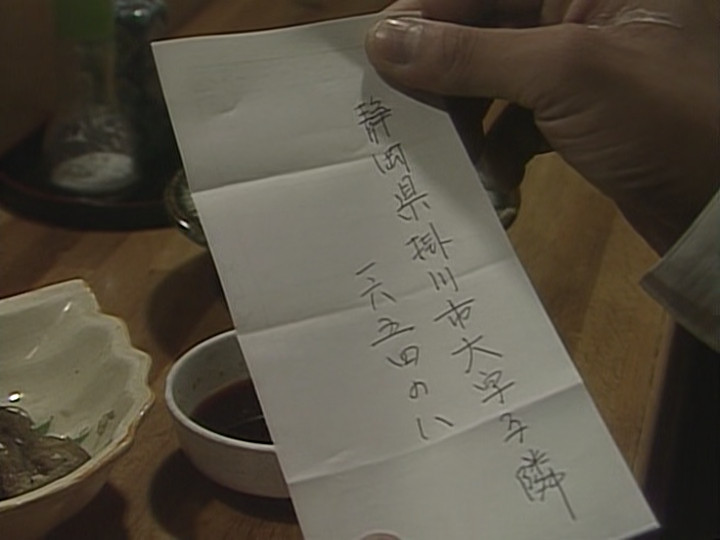 静岡県掛川市大字子隣
一六五四のい